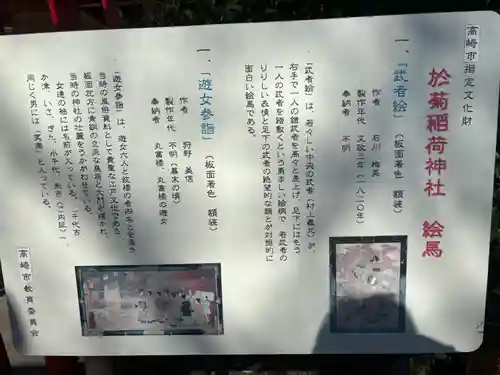 高崎市指定文化財
於菊稲荷神社 絵馬
一、「武者絵」（板面著色 額装）
作者 石川 梅英
製作年代 文政三年（一八二〇年）
奉納者 不明
「武者絵」は、若々しい中央の武者（村上義光）が、
右手で一人の鎧武者を高々と差上げ、足下にはもう
一人の武者を踏敷くという勇ましい絵柄で、若武者の
りりしい表情と足下の武者の絶望的な顔とが対照的に
面白い絵馬である。
一、「遊女参詣」（板面着色 額装）
作者 狩野 美信
製作年代 不明（幕末の頃）
奉納者 丸富楼、丸富楼の遊女
「遊女参詣」は、遊女六人と妓楼の者四名と金過り
当時の風俗資料として貴重な江戸文化である
板面北方に青銅の立派な鳥居と大門が描かれ、
当時の神社の壮麗をうかがわせている。
女達の袖には名前が入っている。「千代吉
か津、いさ、ぎん、小千代、糸吉（二内証）」、
同じく男には「萬栄」と入っている。
高崎市教育委員会